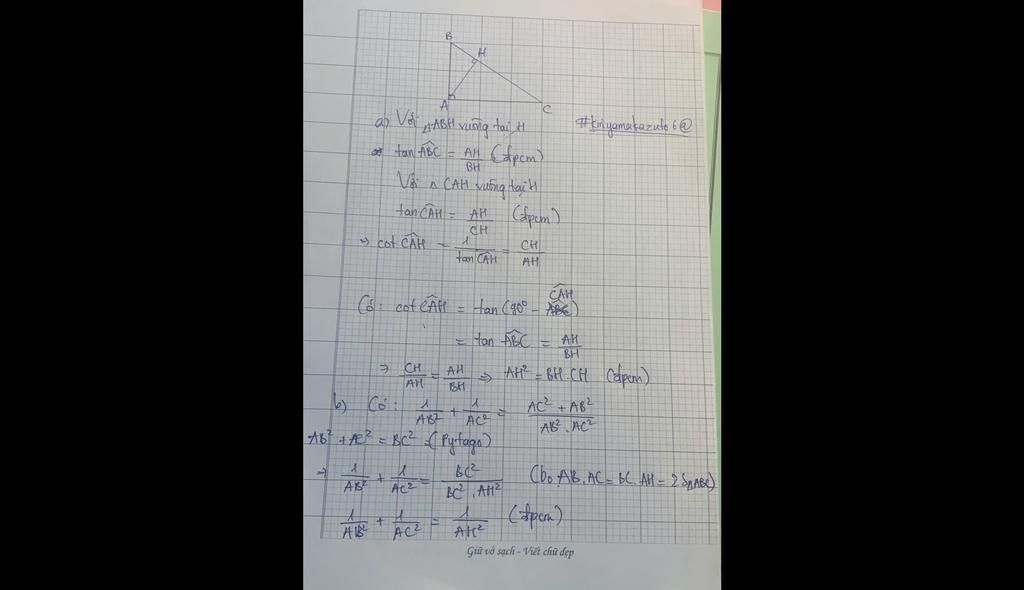 B
H
A
C
a) Với △ABH vuông tại H
#kiriyamakazuto6@
tan ABC = AH/BH (đpcm)
Với △ CAH vuông tại H
tan CAH = AH/CH (đpcm)
⇒ cot CAH = 1/tan CAH = CH/AH
Có: cot CAH = tan (90° - CAH)
= tan ABC = AH/BH
⇒ CH/AH = AH/BH ⇒ AH² = BH.CH (đpcm)
b) Có: 1/AB² + 1/AC² = AC² + AB²/AB².AC²
AB² + AC² = BC² (Pytago)
⇒ 1/AB² + 1/AC² = BC²/BC².AH² (Do AB.AC = BC.AH = 2S△ABC)
1/AB² + 1/AC² = 1/AH² (đpcm)
Giữ vở sạch - Viết chữ đẹp